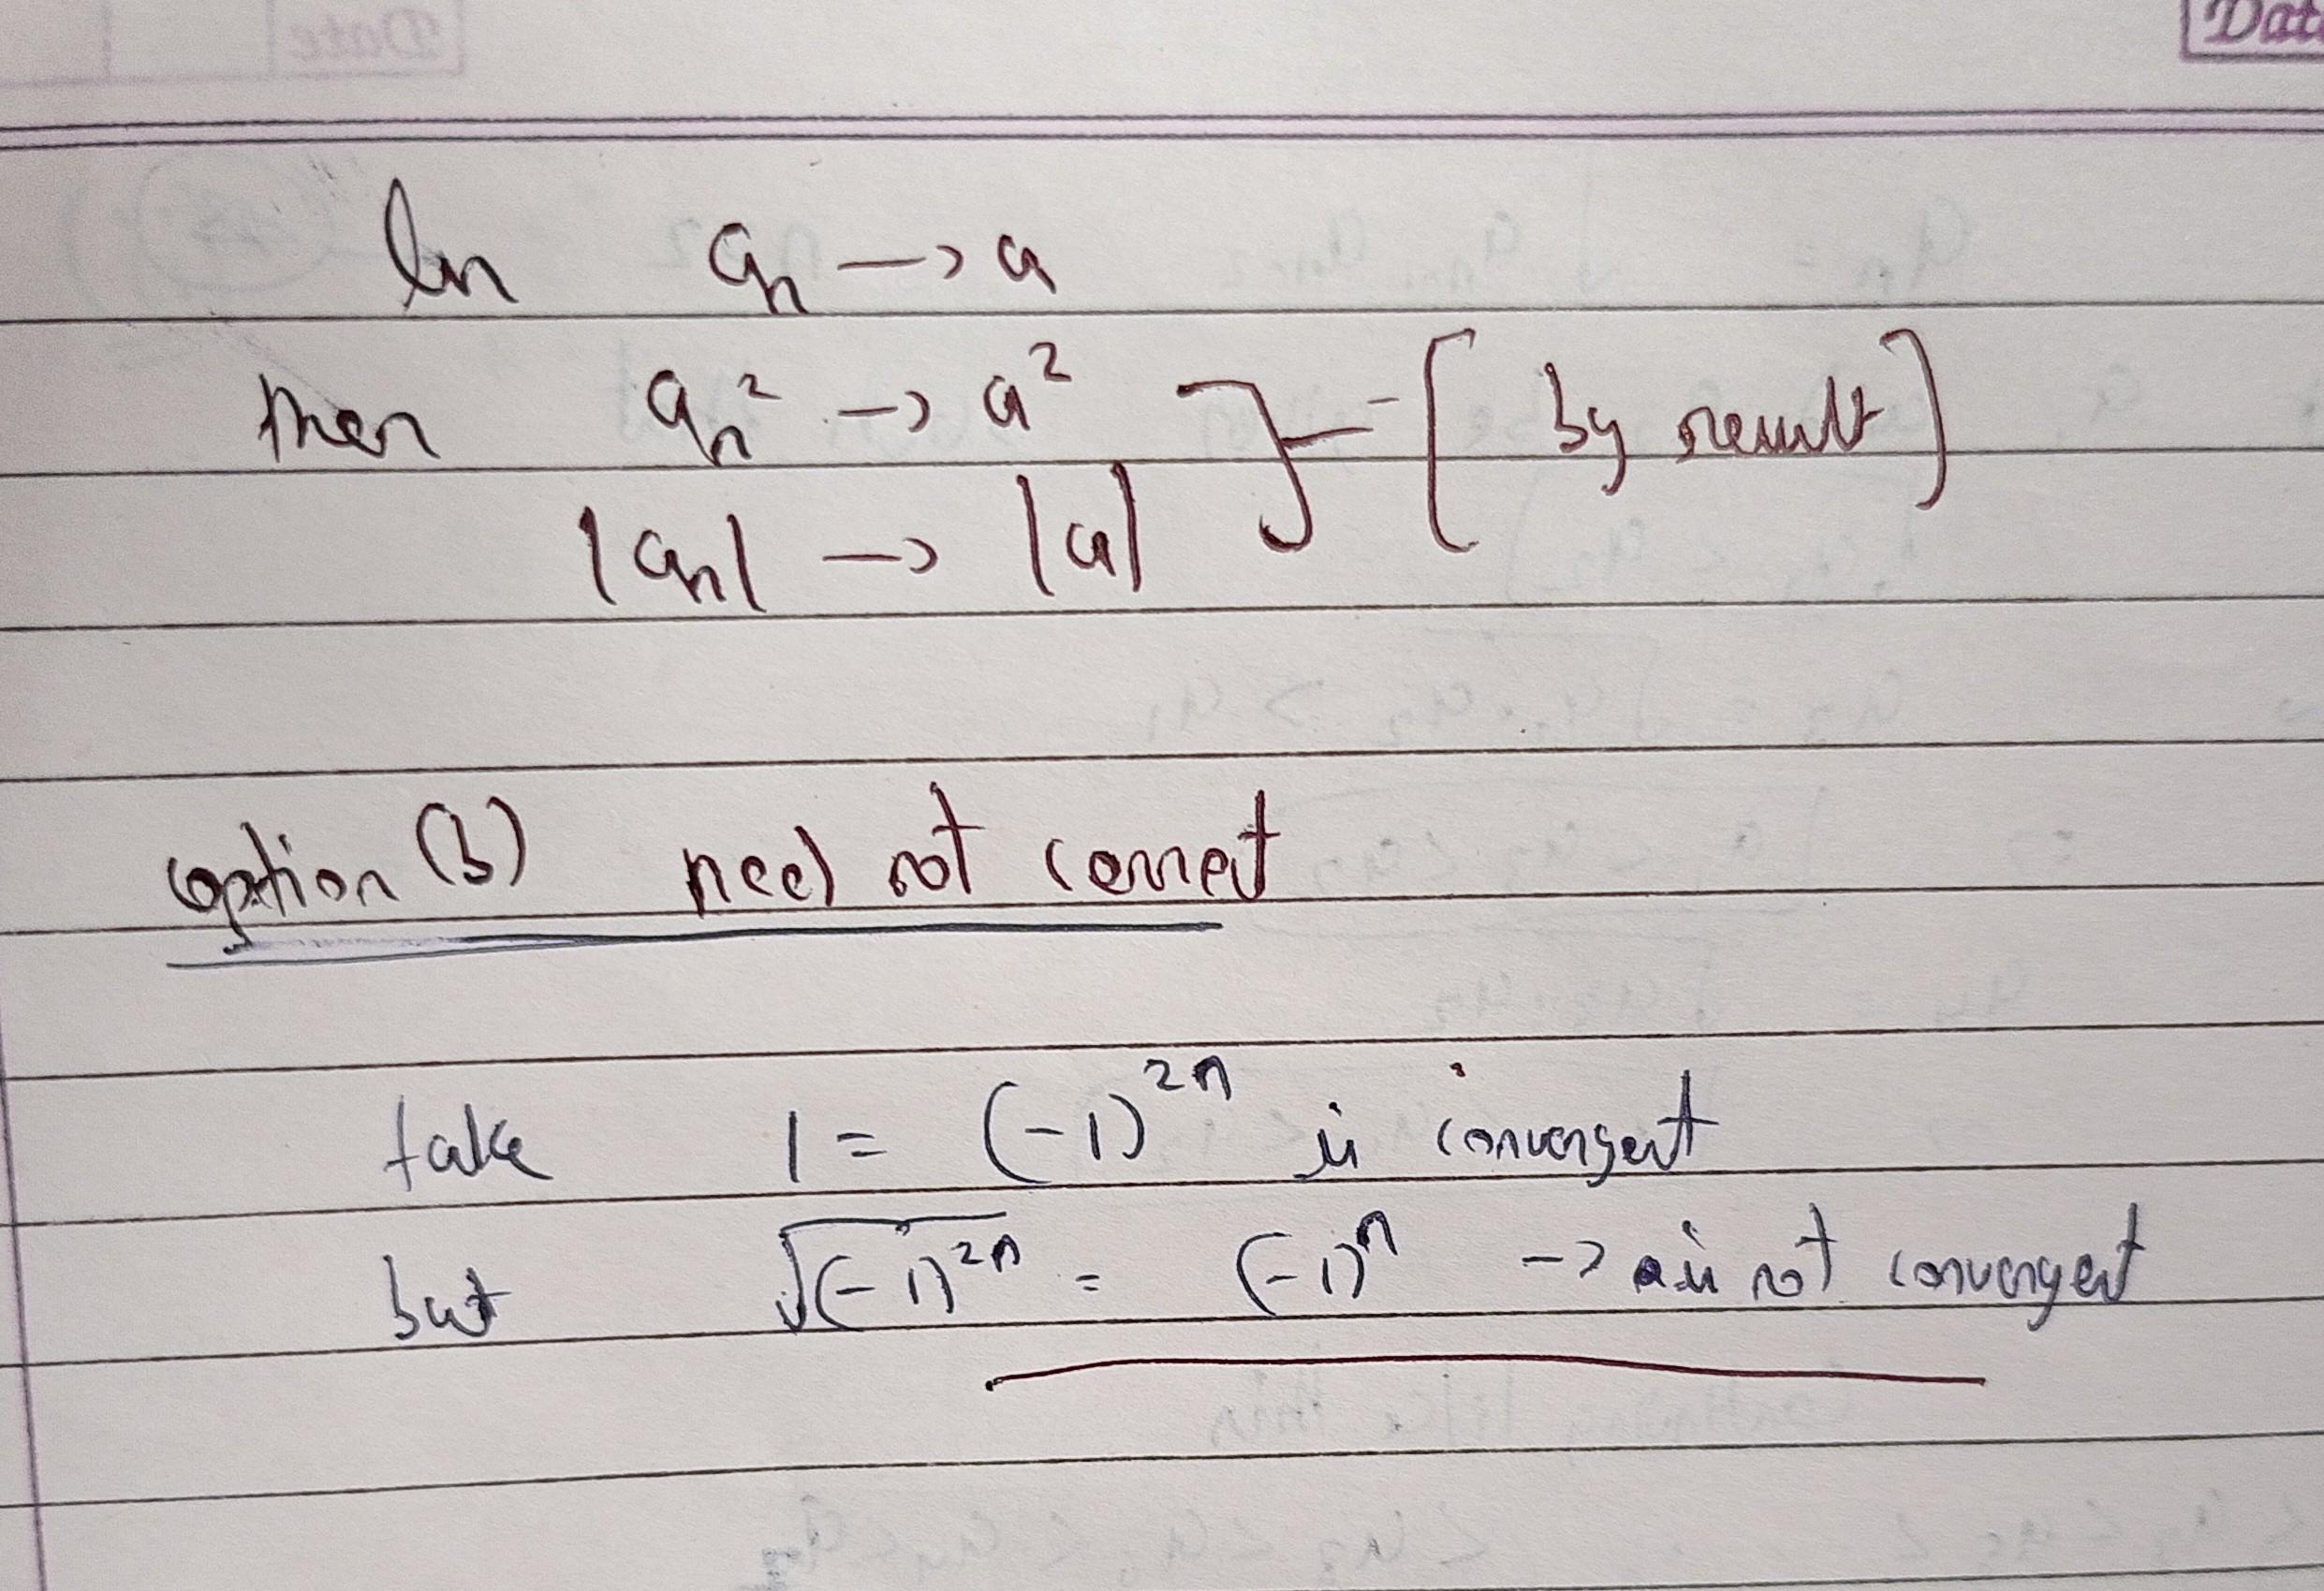 Date
ln aₙ → a
then aₙ² → a² } = [by result]
|aₙ| → |a|
option (b) need not correct
take 1 = (-1)²ⁿ is convergent
but √(-1)²ⁿ = (-1)ⁿ → is not convergent